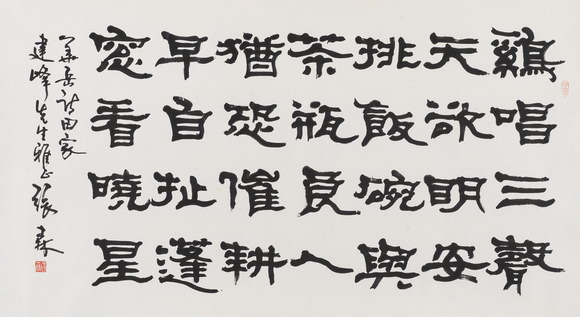 鷄唱三聲
天欲明安
排飯碗與
茶瓶良人
猶恐催耕
早自扯蓬
窓看曉星
華岳詩田家
建峰先生雅正張森